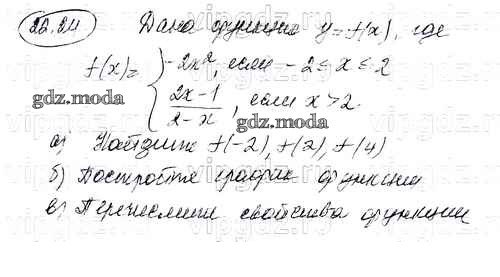 22.24 Дана функция y=f(x), где
f(x)= { -2x², если -2≤x≤2
2x-1/2-x, если x>2.
gdz.moda gdz.moda
а) Найдите f(-2), f(2), f(4)
б) Постройте график функции
в) Перечислить свойства функции